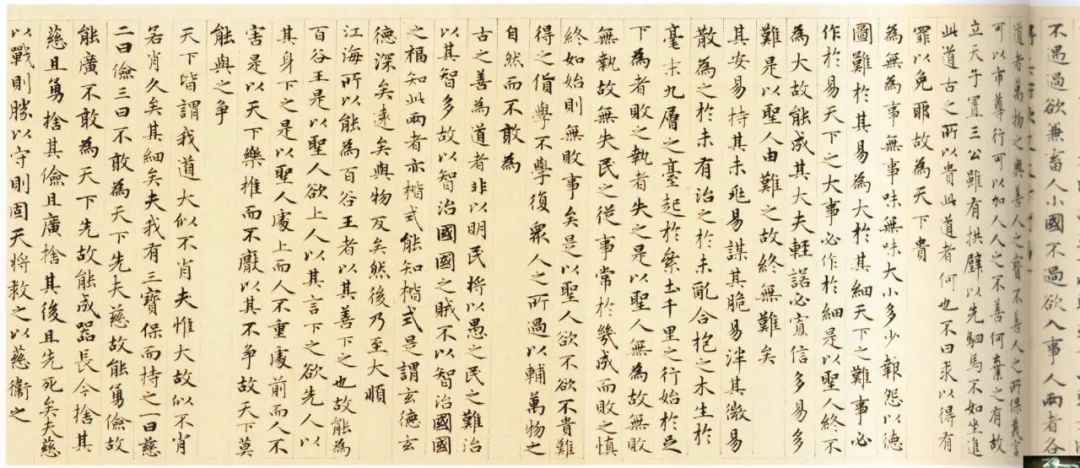 不過過欲兼畜人小國不過欲入事人兩者各
道者萬物之奧善人之寶不善人之所保美言
可以市尊行可以加人人之不善何棄之有故
立天子置三公雖有拱璧以先駟馬不如坐進
此道古之所以貴此道者何也不曰求以得有
罪以免耶故為天下貴
為無為事無事味無味大小多少報怨以德
圖難於其易為大於其細天下之難事必
作於易天下之大事必作於細是以聖人終不
為大故能成其大夫輕諾必寡信多易多
難是以聖人由難之故終無難矣
其安易持其未兆易謀其脆易泮其微易
散為之於未有治之於未亂合抱之木生於
毫末九層之臺起於累土千里之行始於足
下為者敗之執者失之是以聖人無為故無敗
無執故無失民之從事常於幾成而敗之慎
終如始則無敗事矣是以聖人欲不欲不貴難
得之貨學不學復衆人之所過以輔萬物之
自然而不敢為
古之善為道者非以明民將以愚之民之難治
以其智多故以智治國國之賊不以智治國國
之福知此兩者亦楷式能知楷式是謂玄德玄
德深矣遠矣與物反矣然後乃至大順
江海所以能為百谷王者以其善下之也故能為
百谷王是以聖人欲上人以其言下之欲先人以
其身下之是以聖人處上而人不重處前而人不
害是以天下樂推而不厭以其不爭故天下莫
能與之爭
天下皆謂我道大似不肖夫惟大故似不肖
若肖久矣其細矣夫我有三寶保而持之一曰慈
二曰儉三曰不敢為天下先夫慈故能勇儉故
能廣不敢為天下先故能成器長今捨其
慈且勇捨其儉且廣捨其後且先死矣夫慈
以戰則勝以守則固天將救之以慈衛之